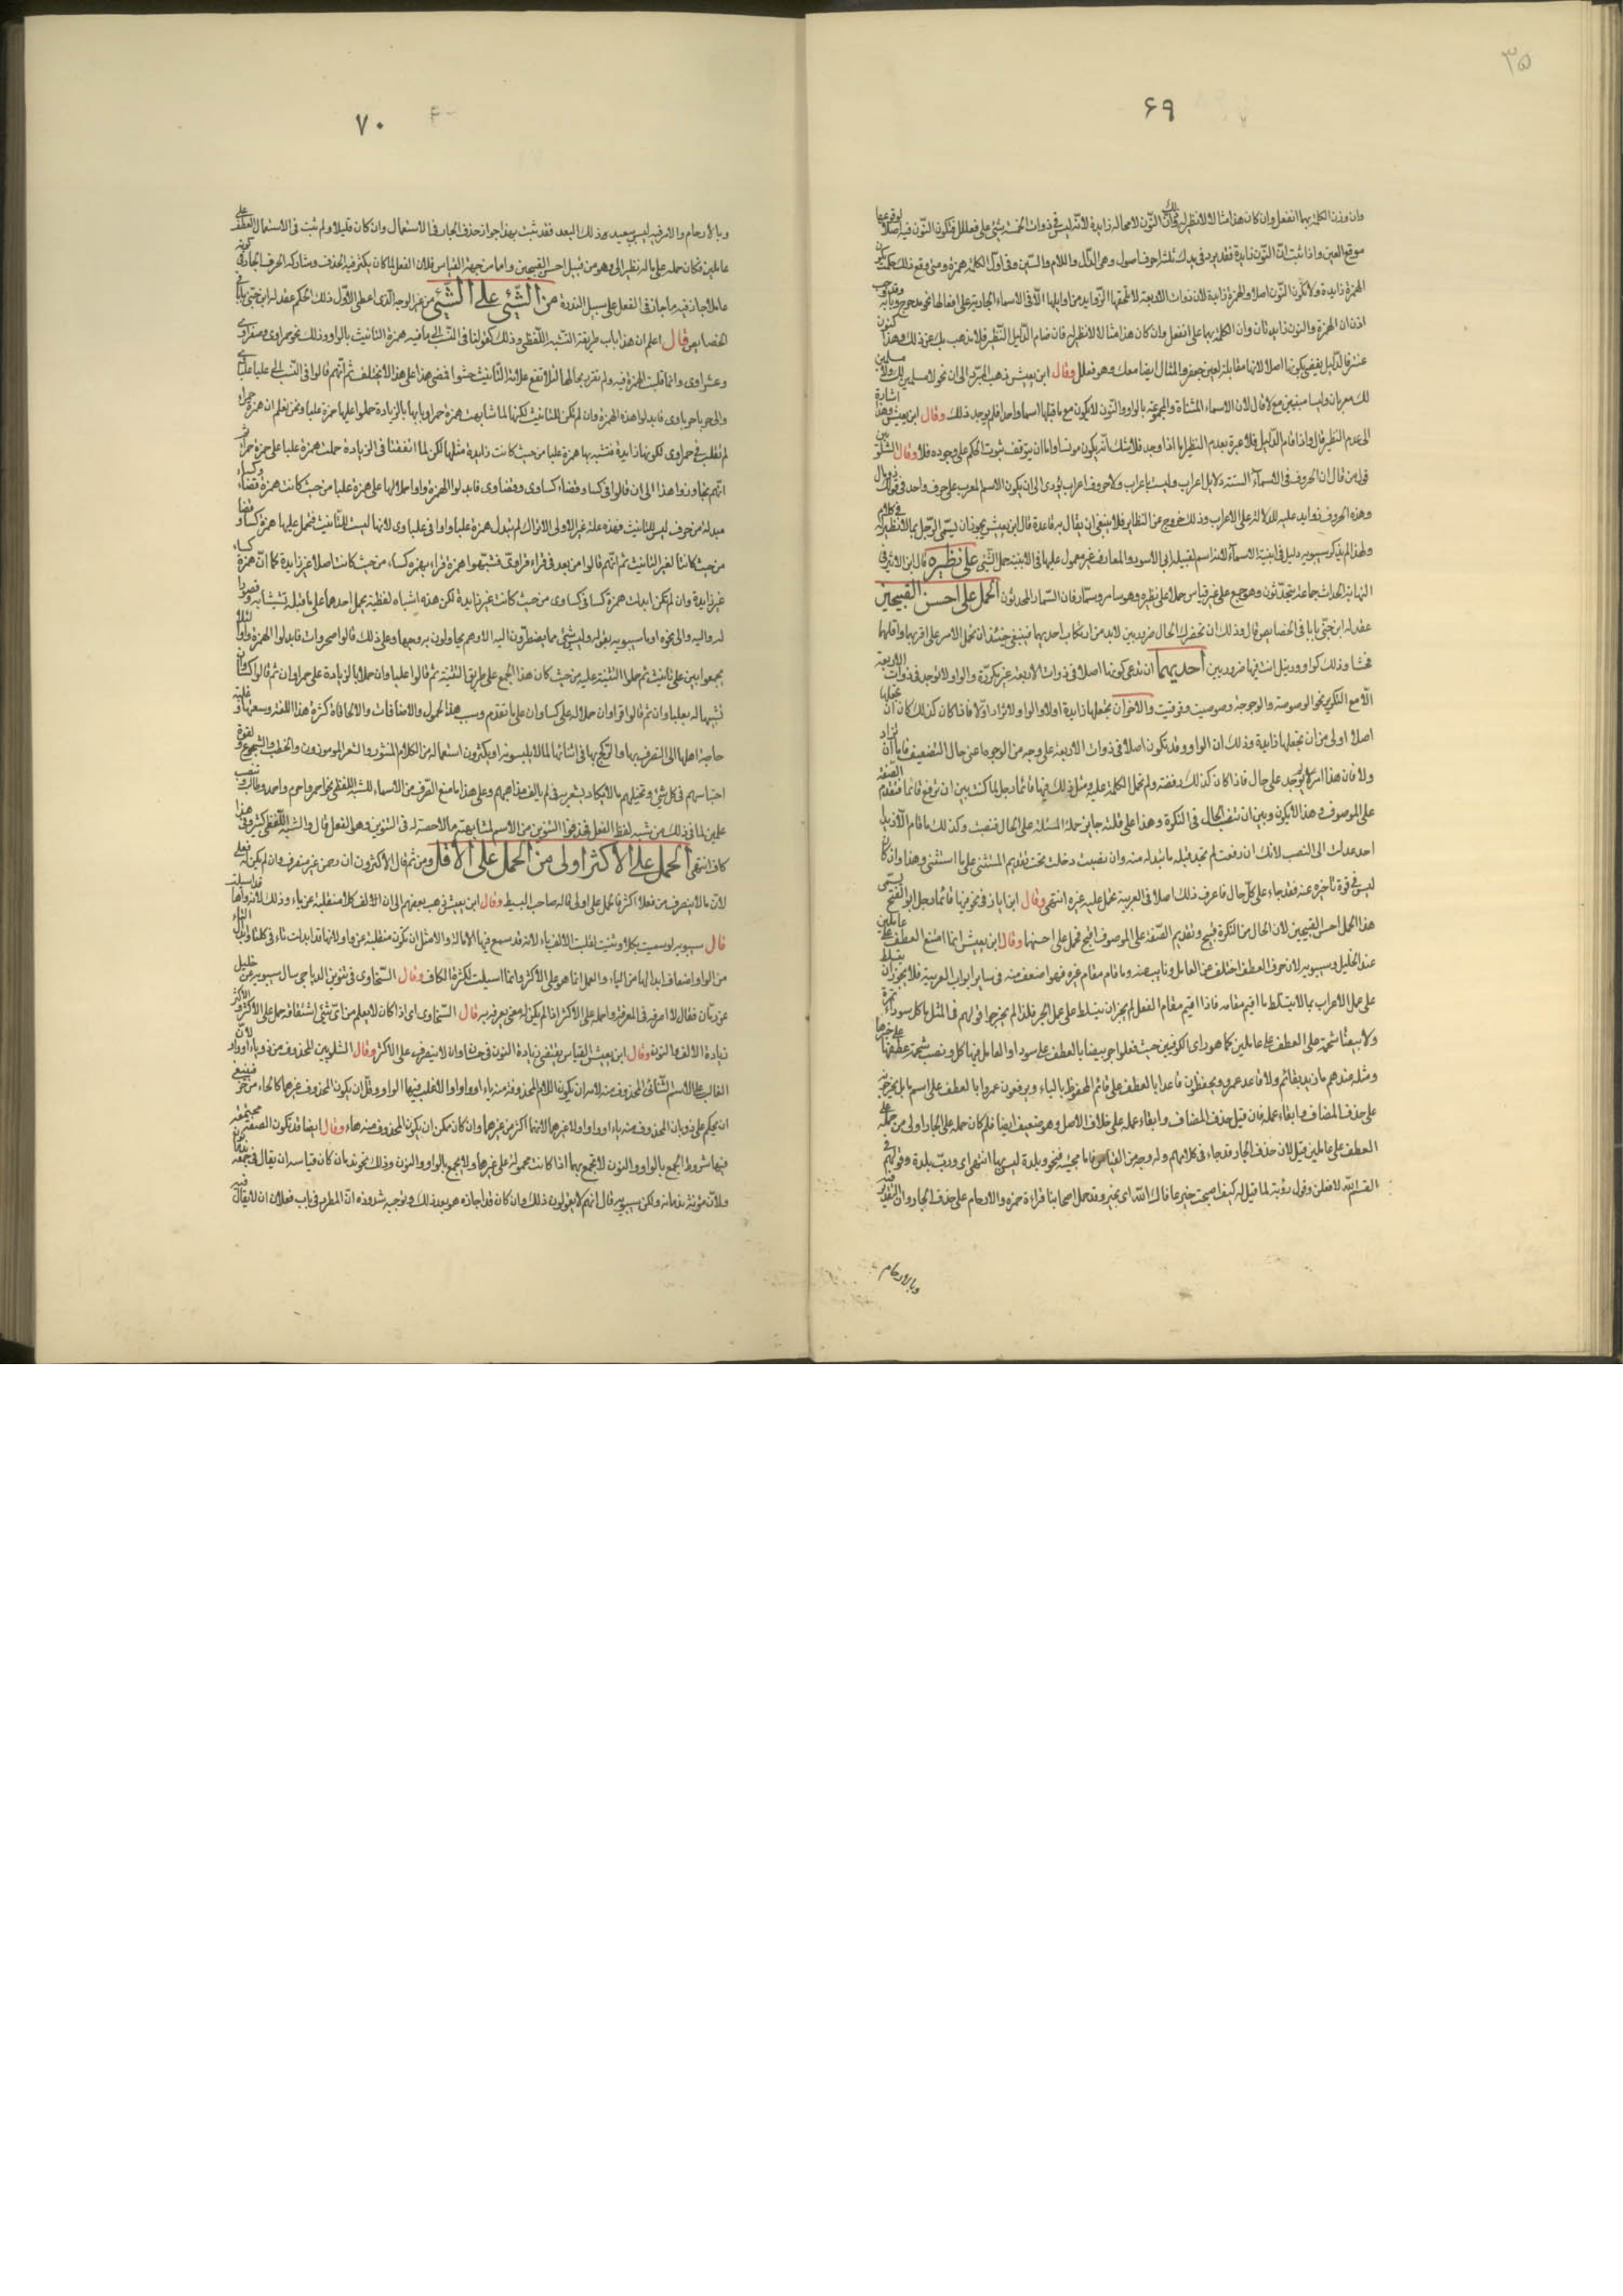 ٣٥
۶٩
وان وزن الكلمة بها انفعل وان كان هذا مثالا لا نظير له فان النون لا محالة زايدة لانه ليس في ذوات الخمسة شئ على فعلل فتكون النون فيه اصلا لوقوعها
موقع العين واذا ثبت ان النون زايدة فقد برد في يدك ثلثة احرف اصول وهى الدال واللام والسين وفى اول الكلمة همزة ومتى وقع ذلك حكمت بكون
الهمزة زايدة ولا تكون النون اصلا والهمزة زايدة لان ذوات الاربعة لا تلحقها الزوايد من اوايلها الا فى الاسماء الجارية على افعالها نحو مدحرج وبابه
اذن ان الهمزة والنون زايدتان وان الكلمة بهما على انفعل وان كان هذا مثالا لا نظير له فان ضام الدليل النظير فلا مذهب بك عن ذلك وهذا كنون
عنتر فالدليل يقضى بكونها اصلا لانها مقابلة لعين جعفر والمثال ايضا معك وهو فعلل وقال ابن يعيش ذهب المبرد الى ان نحو لا مسلمين لك ولا مسلمين
لك معربان وليسا مبنيين مع لا قال لان الاسماء المثناة والمجموعة بالواو والنون لا تكون مع ما قبلها اسما واحدا فلم يوجد ذلك وقال ابن يعيش وهذا اشارة
الى عدم النظير قال واذا قام الدليل فلا عبرة بعدم النظير اما اذا وجد فلا شك انه يكون مونسا واما ان يتوقف ثبوت الحكم على وجوده فلا وقال الشلوبين
قول من قال ان الحروف فى الاسماء الستة دلايل اعراب وليست باعراب ولا حروف اعراب يؤدى الى ان يكون الاسم المعرب على حرف واحد فى قولك ذو مال
وهذه الحروف زوايد عليه للدلالة على الاعراب وذلك خروج عن النظاير فلا ينبغى ان يقال به قاعدة قال ابن يعيش يجوز ان يسمى الرجل بما لا نظير له فى كلامهم
ولهذا لم يذكر سيبويه دئل فى ابنية الاسماء لانه اسم لقبيلة ابى الاسود والمعارف غير معمول عليها فى الابنية حمل الشئ على نظيره قال ابن الاثير فى
النهاية الحداث جماعة يتحدثون وهو جمع على غير قياس حملا على نظيره وهو سامر وسمار فان السمار المحدثون الحمل على احسن القبيحين
عقد له ابن جنى بابا فى الخصايص قال وذلك ان تحضرك الحال ضرورتين لابد من ارتكاب احديهما فينبغى حينئذ ان تحمل الامر على اقربهما واقلهما
فحشا وذلك كواو ورنتل انت فيها ضرورتين احديهما ان تدعى كونها اصلا فى ذوات الاربعة غير مكررة والواو لا توجد فى ذوات الاربعة
الا مع التكرير نحو الوصوصة والوحوحة وضوضيت وقوقيت والاخر ان تجعلها زايدة اولا والواو لا تزاد اولا فاذا كان كذلك كان ان تجعلها
اصلا اولى من ان تجعلها زايدة وذلك ان الواو قد تكون اصلا فى ذوات الاربعة على وجه من الوجوه اعنى حال التضعيف فاما ان تزاد
ولا فان هذا امر لم يوجد على حال فاذا كان كذلك رفضته ولم تحمل الكلمة عليه ومثل ذلك فيها قائما رجل لما كنت بين ان ترفع قائما فتقدم الصفة
على الموصوف وهذا لا يكون وبين ان تنصب الحال فى النكرة وهذا على قلته جايز حملت المسئلة على الحال فنصبت وكذلك ما قام الا زيدا
احد عدلت الى النصب لانك ان رفعت لم تجد قبله ما تبدله منه وان نصبت دخلت تحت تقديم المستثنى على ما استثنى وهذا وان كان
ليس فى قوة تاخيره عنه فقد جاء على كل حال فاعرف ذلك اصلا فى العربية تحمل عليه غيره انتهى وقال ابن اياز فى نحو فيها قائما رجل ابو الفتح يسمى
هذا الحمل احسن القبيحين لان الحال من النكرة قبيح وتقديم الصفة على الموصوف اقبح فحمل على احسنهما وقال ابن يعيش انما امتنع العطف على عاملين
عند الخليل وسيبويه لان حرف العطف اختلف عن العامل ونايب عنه وما قام مقام غيره فهو اضعف منه فى ساير ابواب العربية فلا يجوز ان يتسلط
على عمل الاعراب بما لا يتسلط ما اقيم مقامه فاذا اقيم مقام الفعل لم يجز ان يتسلط على عمل الجر فلهذا لم يخرجوا قولهم فى المثل ما كل سوداء تمرة
ولا بيضاء شحمة على العطف على عاملين كما هو راى الكوفيين حيث جعلوا جر بيضا بالعطف على سودا والعامل فيها كل ونصب شحمة عطفها على خبر ما
ومثله عندهم ما زيد بقائم ولا قاعد عمرو ويخفضون قاعدا بالعطف على قائم المخفوظ بالباء ويرفعون عمروا بالعطف على اسم ما بل يخرجونه
على حذف المضاف وابقاء عمله فان قيل حذف المضاف وابقاء عمله على خلاف الاصل وهو ضعيف ايضا فلم كان حمله على الجار اولى من حمله على
العطف على عاملين قيل لان حذف الجار قد جاء فى كلامهم وله وجه من القياس فاما مجيئه فنحو وبلدة ليس بها انتهى اى ورب بلدة وقولهم فى
القسم الله لافعلن وقول رؤبة لما قيل له كيف اصبحت خير عافاك الله اى بخير وقد حمل اصحابنا قراءة حمزة والارحام على حذف الجار وان التقدير فيه
وبالارحام
٧٠
وبالارحام والامر فيه ليس ببعيد ذلك البعد فقد ثبت بهذا جواز حذف الجار فى الاستعمال وان كان قليلا ولم يثبت فى الاستعمال العطف على
عاملين فكان حمله على ماله نظير اولى وهو من قبيل احسن القبيحين واما من جهة القياس فلان الفعل لما كان يكثر فيه الحذف وشاركه الحرف الجار فى كونه
عاملا جاز فيه ما جاز فى الفعل على سبيل الندرة من الشئ على الشئ من غير الوجه الذى اعطى الاول ذلك الحكم عقد له ابن جنى بابا فى
الخصايص قال اعلم ان هذا باب طريقه الشبه اللفظى وذلك كقولنا فى النسب الى ما فيه همزة التانيث بالواو وذلك نحو حمراوى وصفراوى
وعشراوى وانما قلبت الهمزة فيه ولم تقر بحالها لئلا تقع علامة التانيث حشوا فمضى هذا على هذا لا يختلف ثم انهم قالوا فى النسب الى علباء علباوى
والى حرباء حرباوى فابدلوا هذه الهمزة وان لم تكن للتانيث لكنها لما شابهت همزة حمراء وبابها بالزيادة حملوا عليها همزة علباء ونحن نعلم ان همزة حمراء
لم تقلب فى حمراوى لكونها زايدة فتشبه بها همزة علباء من حيث كانت زايدة مثلها لكن لما اتفقتا فى الزيادة حملت همزة علباء على همزة حمراء ثم
انهم تجاوزوا هذا الى ان قالوا فى كساء وقضاء كساوى وقضاوى فابدلوا الهمزة واوا حملا لها على همزة علباء من حيث كانت همزة كساء وقضاء
مبدلة من حرف ليس للتانيث فهذه علة غير الاولى الا تراك لم تبدل همزة علباء واوا فى علباوى لانها ليست للتانيث فتحمل عليها همزة كساء وقضاء
من حيث كانتا لغير التانيث ثم انهم قالوا من بعد فى قراء قراوى فشبهوا همزة قراء بهمزة كساء من حيث كانت اصلا غير زايدة كما ان همزة كساء
غير زايدة وان لم تكن ابدلت همزة كساء فى كساوى من حيث كانت غير زايدة لكن هذه اشباه لفظية يحمل احدها على ما قبله تشبثا به وتصورا
له واليه والى نحوه اوما سيبويه بقوله وليس شئ مما يضطرون اليه الا وهم يحاولون به وجها وعلى ذلك قالوا صحراوات فابدلوا الهمزة واوا لئلا
يجمعوا بين علمى تانيث ثم حملوا التثنية عليه من حيث كان هذا الجمع على طريق التثنية ثم قالوا علباوان حملا بالزيادة على حمراوان ثم قالوا كساوان
تشبيها له بعلباوان ثم قالوا قراوان حملا له على كساوان على ما تقدم وسبب هذه الحمول والاضافات والالحاقات كثرة هذه اللغة وسعتها وغلبة
حاجة اهلها الى التصرف بها والتركح بها فى اثنائها لما لا يلبسونه ويكثرون استعماله من الكلام المنثور والشعر الموزون والخطب والسجوع ولقوة
احساسهم فى كل شئ وتخيلهم ما لا يكاد يشعر به فى لم يالف مذاهبهم وعلى هذا ما منع الصرف من الاسماء للشبه اللفظى نحو احمر واصرم واحمد وتالب وتنضب
علمين لما فى ذلك من شبه لفظ الفعل فحذفوا التنوين من الاسم لمشابهته ما لا حصة له فى التنوين وهو الفعل قال والشبه اللفظى كثير وفى هذا
كاف انتهى الحمل على الاكثر اولى من الحمل على الاقل ومن ثم قال الاكثرون ان رحمن غير منصرف وان لم يكن له فعلى
لان ما لا ينصرف من فعلان اكثر فالحمل عليه اولى قاله صاحب البسيط وقال ابن يعيش ذهب بعضهم الى ان الالف كلا منقلبة عن ياء وذلك لانه راها قد اميلت
قال سيبويه لو سميت بكلا وثنيت لقلبت الالف ياء لانه قد سمع فيها الامالة والامثل ان تكون منقلبة عن واو لانها قد ابدلت تاء فى كلتا وابدال التاء
من الواو اضعاف ابدالها من الياء والعمل انما هو على الاكثر وانما اميلت لكسرة الكاف وقال السخاوى فى تنوير الدياجى سال سيبويه الخليل
عن رمان فقال لا اصرفه فى المعرفة واحمله على الاكثر اذا لم يكن له معنى يعرف به قال السخاوى اى اذا كان لا يعلم من اى شئ اشتقاقه حمل على الاكثر والاكثر
زيادة الالف والنون وقال ابن يعيش القياس يقتضى زيادة النون فى حسان وان لا ينصرف حملا على الاكثر وقال الشلوبين المحذوف من ذو ياء او واو لان
الغالب على الاسم الثنائى المحذوف منه لامه ان يكون اللام المحذوفة منه ياء او واوا والاغلب فيها الواو وقل ان يكون المحذوف غيرها كالحاء من حر فينبغى
ان يحكم على ذو بان المحذوف منه ياء او واو ولا غيرها لانهما اكثر من غيرها وان كان ممكن ان يكون المحذوف منه هاء وقال ايضا قد تكون الصفة مجتمعة
فيها شروط الجمع بالواو والنون لا تجمع بهما اذا كانت محمولة على غيرها ولا يجمع بالواو والنون وذلك نحو ندمان كان قياسه ان يقال فى جمعه ندمانون
ولان مؤنثه ندمانة ولكن سيبويه قال انهم لا يقولون ذلك وان كان قد اجازه هو بعد ذلك وتوجيه شذوذه ان المطرد فى باب فعلان ان لا يقال فيه